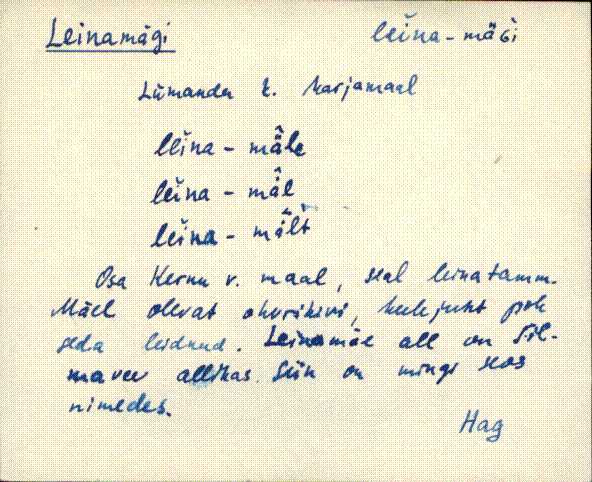 Leinamägi leĭna-mäɢi
Liimandu k. Karjamaal
leĭna-mäle
leĭna-mäl
leĭna-mält
Osa Kernu v. maal, seal leinatamm.
Mäel olevat ohvrikivi, kuke juht pole
seda leidnud. Leinamäe all on Sil-
mavee allikas. Siin on mingi seos
nimedes.
Hag